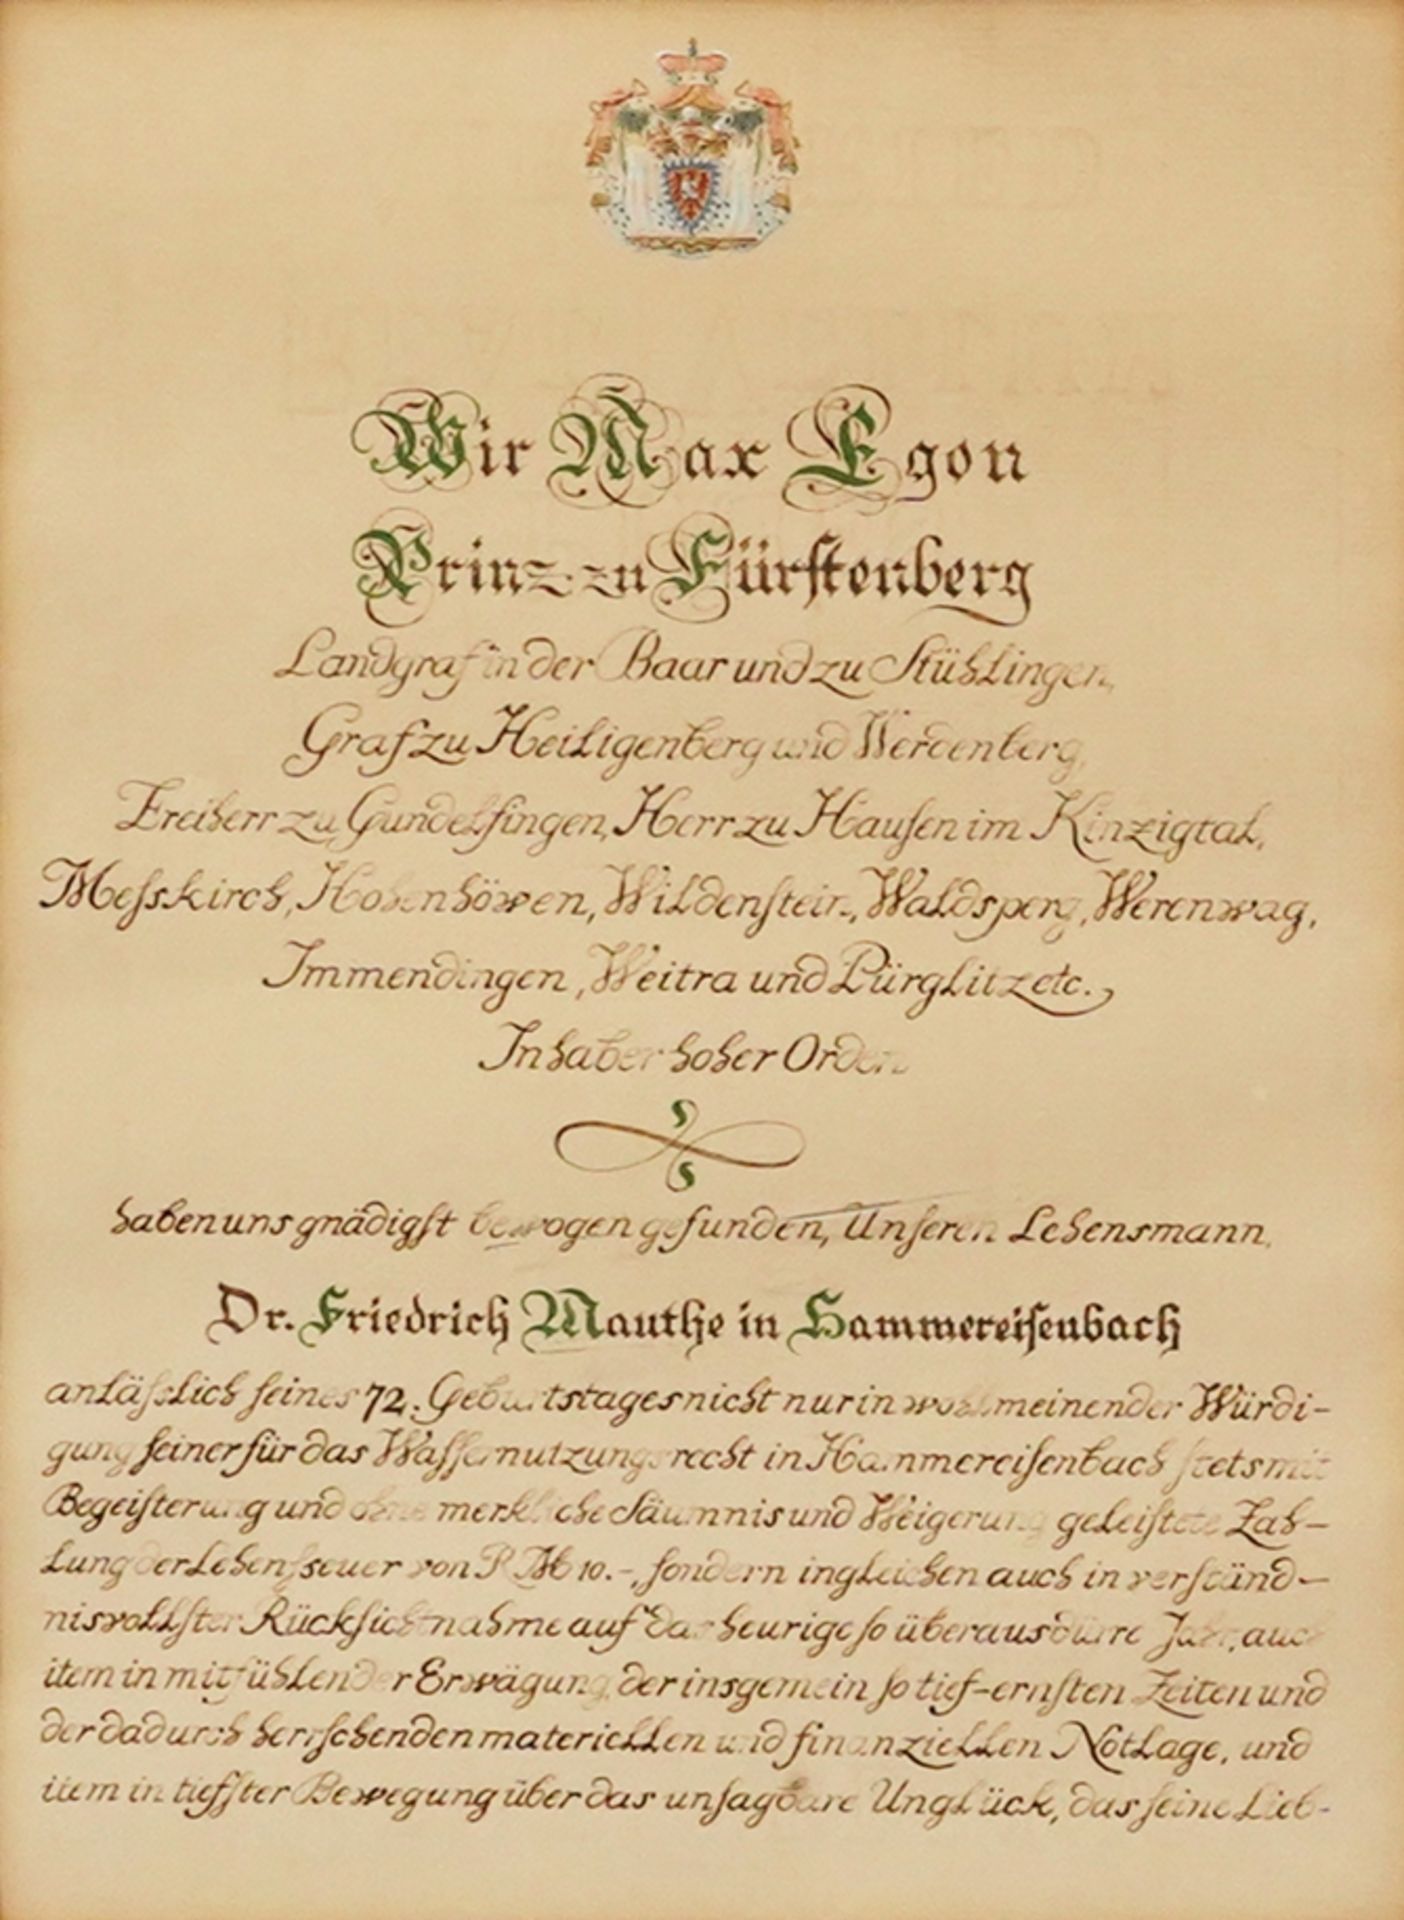 Wir Max Egon
Prinz zu Fürstenberg
Landgraf in der Baar und zu Stühlingen,
Graf zu Heiligenberg und Werdenberg,
Freiherr zu Gundelfingen, Herr zu Hausen im Kinzigtal,
Messkirch, Hohenhöwen, Wildenstein, Waldsperg, Werenwag,
Immendingen, Weitra und Pürglitz etc.,
Inhaber hoher Orden
haben uns gnädigst bewogen gefunden, Unseren Lehensmann,
Dr. Friedrich Mauthe in Hammereisenbach
anlässlich seines 72. Geburtstages nicht nur in wohlmeinender Würdi-
gung seiner für das Wassernutzungsrecht in Hammereisenbach stets mit
Begeisterung und ohne merkliche Säumnis und Weigerung geleistete Zah-
lung der Lehenssteuer von RM 10.-, sondern ingleichen auch in verständ-
nisvollster Rücksichtnahme auf das heurige so überaus dürre Jahr, auch
item in mitfühlender Erwägung der insgemein so tief-ernsten Zeiten und
der dadurch herrschenden materiellen und finanziellen Notlage, und
item in tiefster Bewegung über das unsagbare Unglück, das seine Lieb-